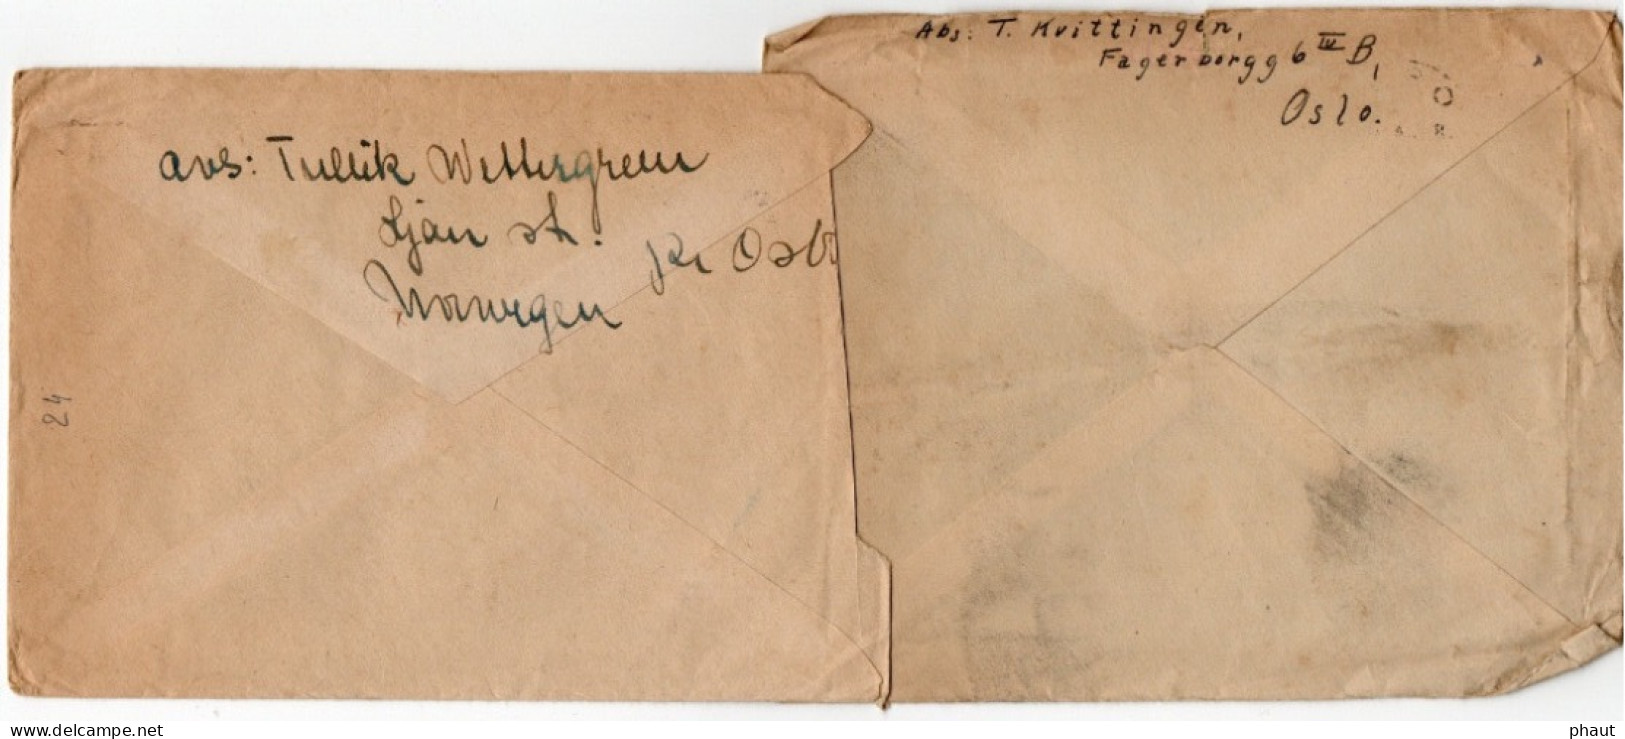 avs: Tullik Wettergreen
Ljan st.
pr Oslo
Norwegen
24
Abs: T. Kvittingen,
Fagerborgg 6 IV B,
Oslo.
www.delcampe.net
phaut